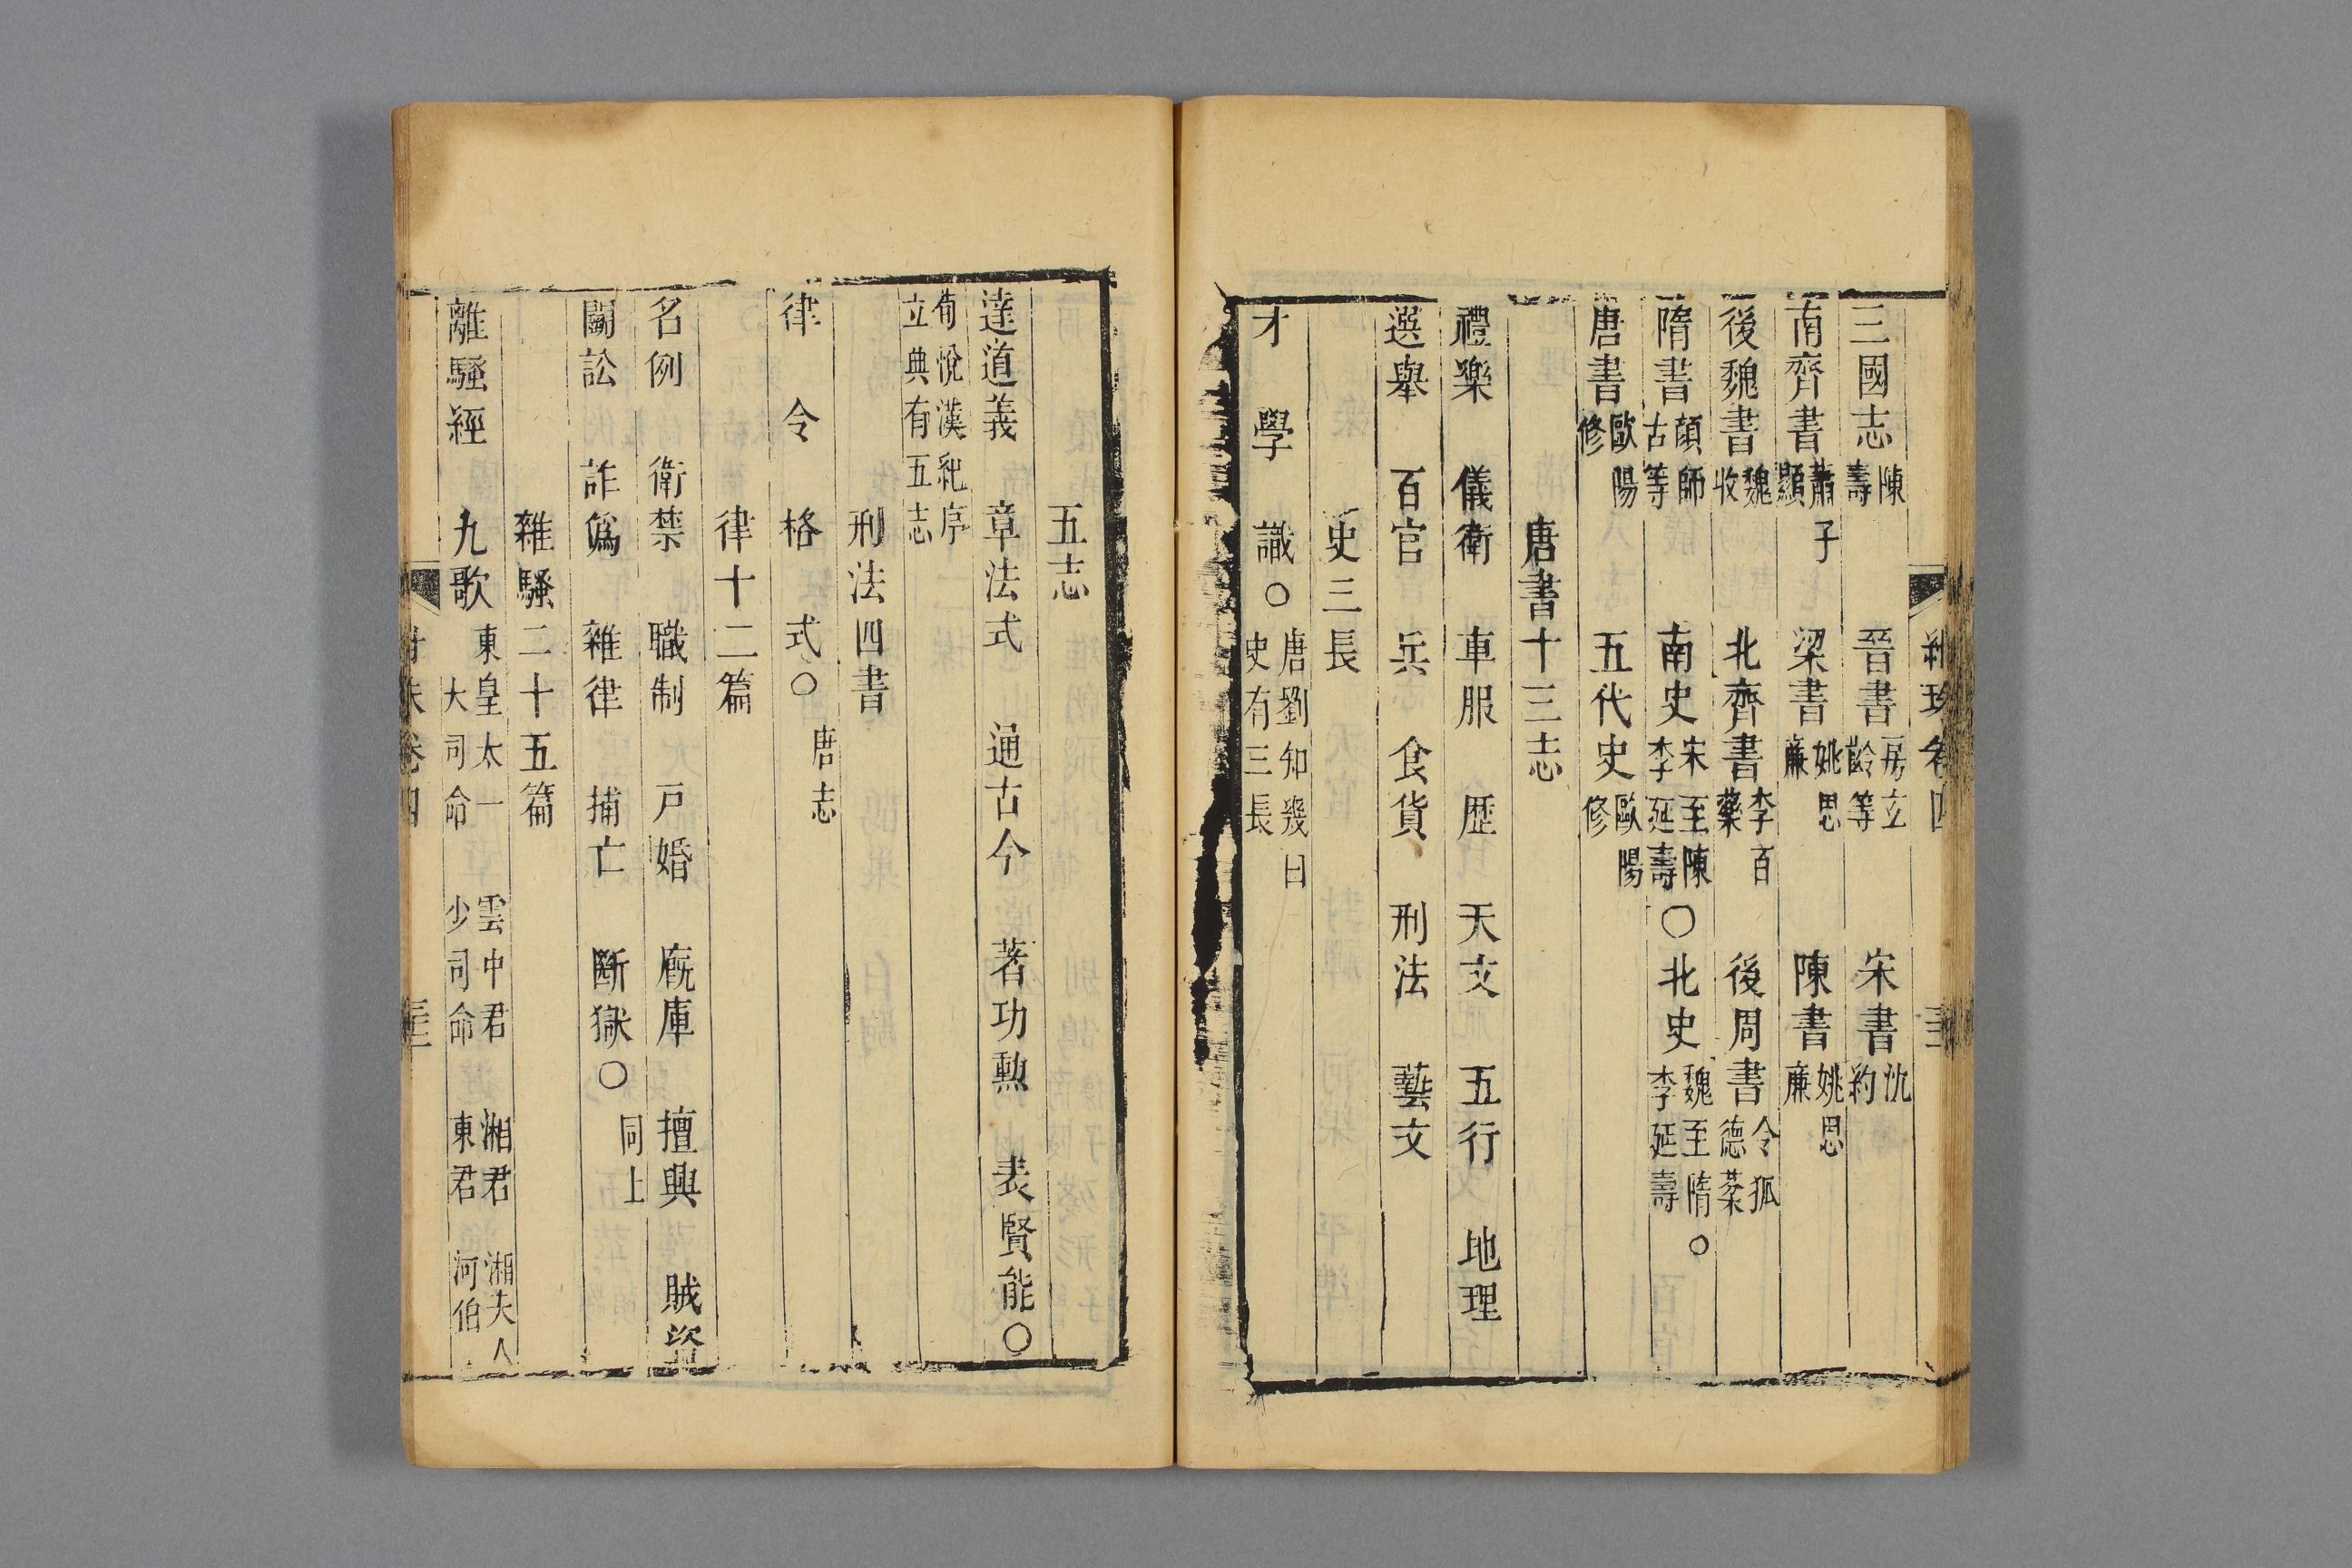 三國志 陳壽 晉書 房玄齡等 宋書 沈約
南齊書 蕭子顯 梁書 姚思廉 陳書 姚思廉
後魏書 魏收 北齊書 李百藥 後周書 令狐德棻
隋書 顔師古等 南史 宋至陳李延壽 〇北史 魏至隋李延壽 〇
唐書 歐陽修 五代史 歐陽修
唐書十三志
禮樂 儀衛 車服 歷 天文 五行 地理
選舉 百官 兵 食貨 刑法 藝文
史三長
才 學 識〇 唐劉知幾曰史有三長
五志
達道義 章法式 通古今 著功勲 表賢能〇
荀悅漢紀序立典有五志
刑法四書
律 令 格 式〇 唐志
律十二篇
名例 衛禁 職制 戸婚 廐庫 擅興 賊盜
鬭訟 詐僞 雜律 捕亡 斷獄〇 同上
離騷二十五篇
離騷經 九歌 東皇太一 雲中君 湘君 湘夫人 大司命 少司命 東君 河伯